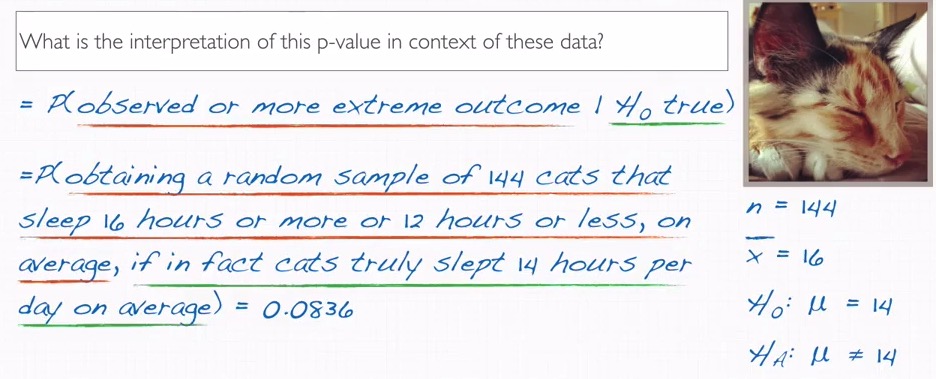 What is the interpretation of this p-value in context of these data?
= P(observed or more extreme outcome | H₀ true)
=P(obtaining a random sample of 144 cats that
sleep 16 hours or more or 12 hours or less, on
average, if in fact cats truly slept 14 hours per
day on average) = 0.0836
n = 144
x̄ = 16
H₀: μ = 14
Hᴀ: μ ≠ 14